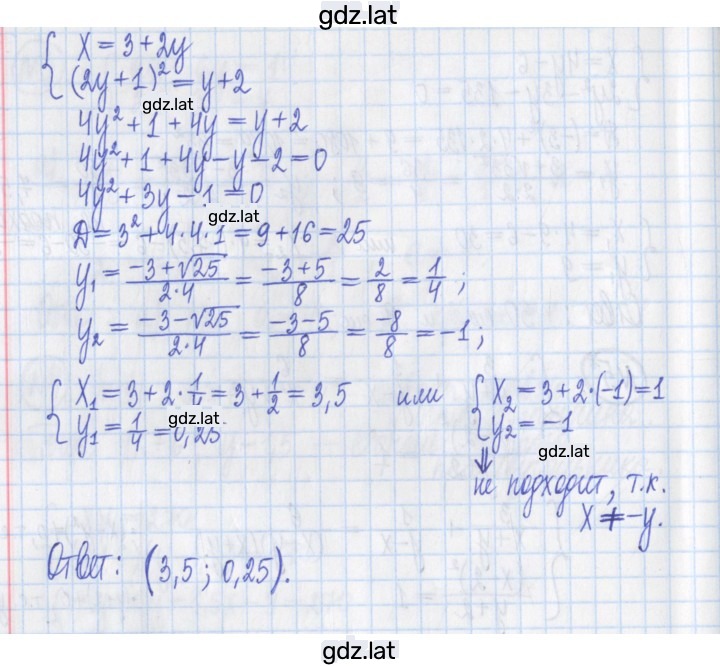 gdz.lat
{ x = 3 + 2y
(2y + 1)² = y + 2
gdz.lat
4y² + 1 + 4y = y + 2
4y² + 1 + 4y - y - 2 = 0
4y² + 3y - 1 = 0
gdz.lat
Д = 3² + 4·4·1 = 9 + 16 = 25
y₁ = (-3 + √25)/(2·4) = (-3 + 5)/8 = 2/8 = 1/4 ;
y₂ = (-3 - √25)/(2·4) = (-3 - 5)/8 = -8/8 = -1 ;
{ x₁ = 3 + 2·1/4 = 3 + 1/2 = 3,5 или { x₂ = 3 + 2·(-1) = 1
y₁ = 1/4 = 0,25 y₂ = -1
gdz.lat gdz.lat
⇓
не подходит, т.к.
x ≠ -y.
Ответ: (3,5 ; 0,25).
gdz.lat
gdz.lat